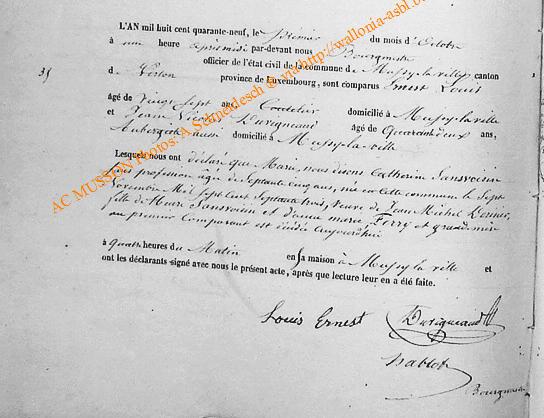 L'AN mil huit cent quarante-neuf, le premier du mois d'Octobre
à une heure après midi par-devant nous Bourgmestre
officier de l'état civil de la commune de Mussy-la-ville, canton
35
de Virton province de Luxembourg, sont comparus Ernest Louis
âgé de vingt sept ans, domicilié à Mussy-la-ville
et Jean Duvigneaud âgé de Quarante deux ans,
Aubergiste aussi domicilié à Mussy-la-ville
Lesquels nous ont déclaré que Marie, nous disons Catherine Sansvoisin
sans profession âgée de Septante cinq ans, née en cette commune le Sept
Novembre Mil Sept Cent Septante trois, veuve de Jean Michel
fille de Henri Sansvoisin et d'anne marie Ferry et grand-mère
au premier Comparant est décédée Aujourd'hui
à quatre heures du Matin en sa maison à Mussy-la ville et
ont les déclarants signé avec nous le présent acte, après que lecture leur en a été faite.
Louis Ernest Duvigneaud
Bourgmestre
AC MUSSON Photos: A Schneidesch @ via http://wallonia-asbl.b